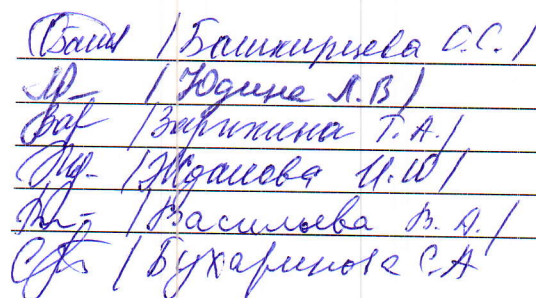 Баш / Башкирцева С.С. /
Ю- / Юдина Л.В /
Вар / Варихина Т.А. /
Жд- / Жданова И.Ю /
/ Васильева В.А. /
/ Бухаринова С.А